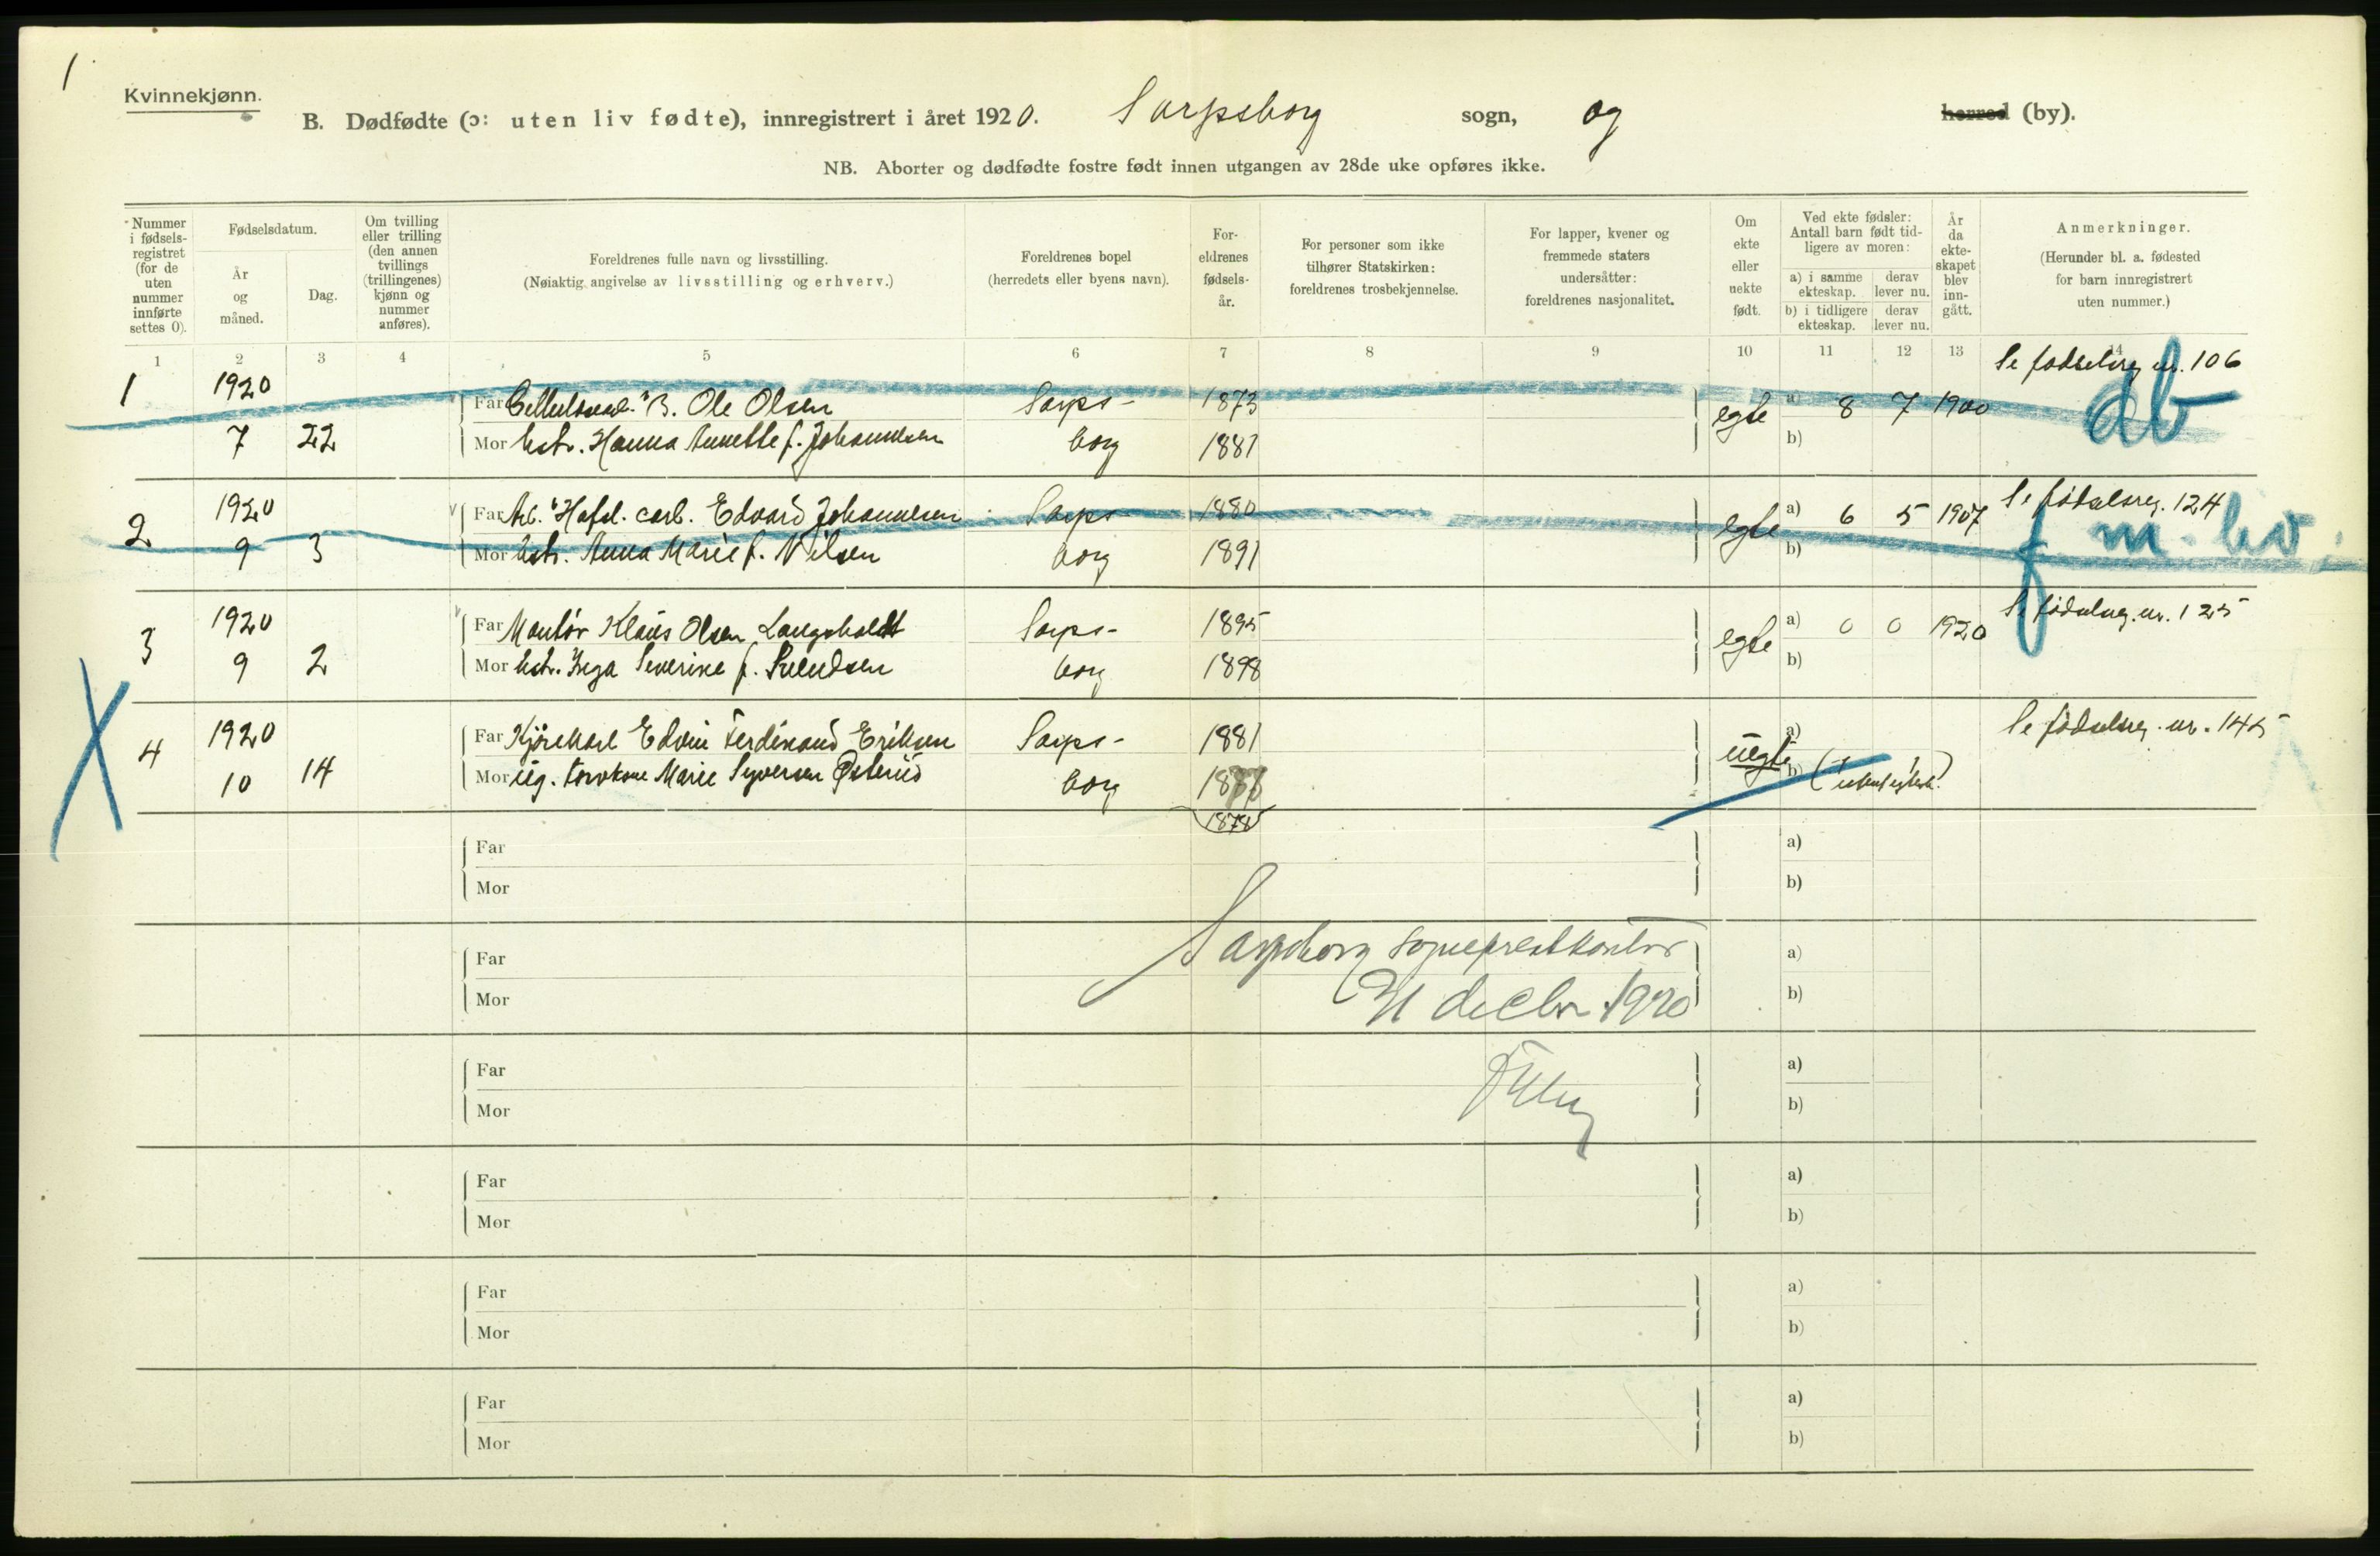 1
Kvinnekjønn.
B. Dødfødte (ɔ: uten liv fødte), innregistrert i året 1920. Sarpsborg sogn, og herred (by).
NB. Aborter og dødfødte fostre født innen utgangen av 28de uke opføres ikke.
Nummer i fødsels- registret (for de uten nummer innførte settes 0).
Fødselsdatum.
År og måned.
Dag.
Om tvilling eller trilling (den annen tvillings (trillingenes) kjønn og nummer anføres).
Foreldrenes fulle navn og livsstilling.
(Nøiaktig angivelse av livsstilling og erhverv.)
Foreldrenes bopel
(herredets eller byens navn).
For- eldrenes fødsels- år.
For personer som ikke tilhører Statskirken: foreldrenes trosbekjennelse.
For lapper, kvener og fremmede staters undersåtter: foreldrenes nasjonalitet.
Om ekte eller uekte født.
Ved ekte fødsler: Antall barn født tid- ligere av moren:
a) i samme ekteskap.
derav lever nu.
b) i tidligere ekteskap.
derav lever nu.
År da ekte- skapet blev inn- gått.
Anmerkninger.
(Herunder bl. a. fødested for barn innregistrert uten nummer.)
1 2 3 4 5 6 7 8 9 10 11 12 13 14
Se fødselsreg nr. 106
1 1920 Far B. Ole Olsen Sarps- 1873 egte a) 8 7 1900 db
7 22 Mor Hanna Annette f. Johannesen borg 1881 b)
2 1920 Far Arb. Edvard Johannesen Sarps- 1880 egte a) 6 5 1907 Se fødselsreg. 124
9 3 Mor Anna Marie f. Nilsen borg 1891 b)
f m. hv.
3 1920 Far Montør Klaus Olsen Langholdt Sarps- 1895 egte a) 0 0 1920 Se fødselsreg. nr. 125
9 2 Mor Inga Severine f. Svendsen borg 1898 b)
X 4 1920 Far Kjørekarl Edvin Ferdinand Eriksen Sarps- 1881 uegte a) Se fødselsreg. nr. 145
10 14 Mor ug. Marie Syversen Østerud borg b)
1878
Far a)
Mor b)
Sarpsborg sogneprestkontor
Far a)
31 decbr 1920
Mor b)
Far a)
Mor b)
Far a)
Mor b)
Far a)
Mor b)
Far a)
Mor b)